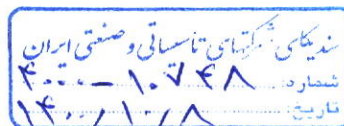 سندیکای شرکتهای تأسیساتی و صنعتی ایران
شماره: ۴۰۰۰-۱۰۷۴۸
تاریخ: ۱۴۰۰/۱۰/۸